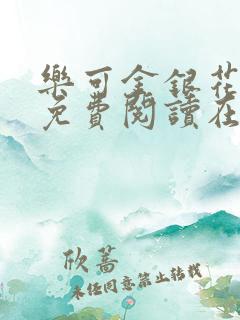 樂可金銀花
免費閱讀在
欣蔷
未经同意禁止转载